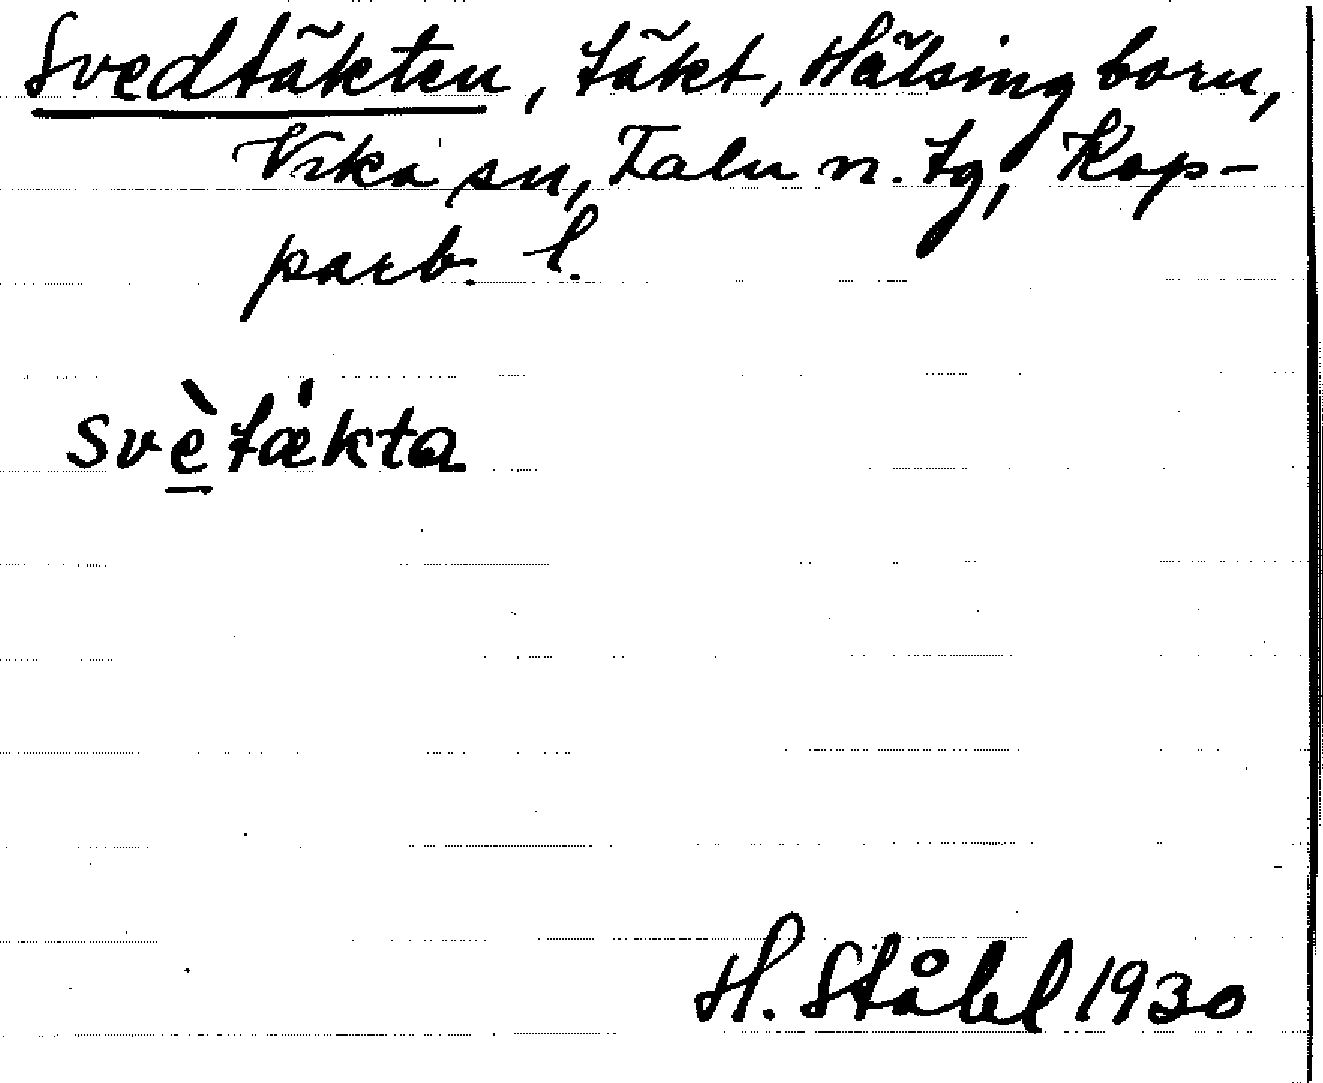 Svedtäkten, täkt, Hälsingborn,
Vika sn, Falu n. tg, Kop-
parb. l.
svètækta
H. Ståhl 1930